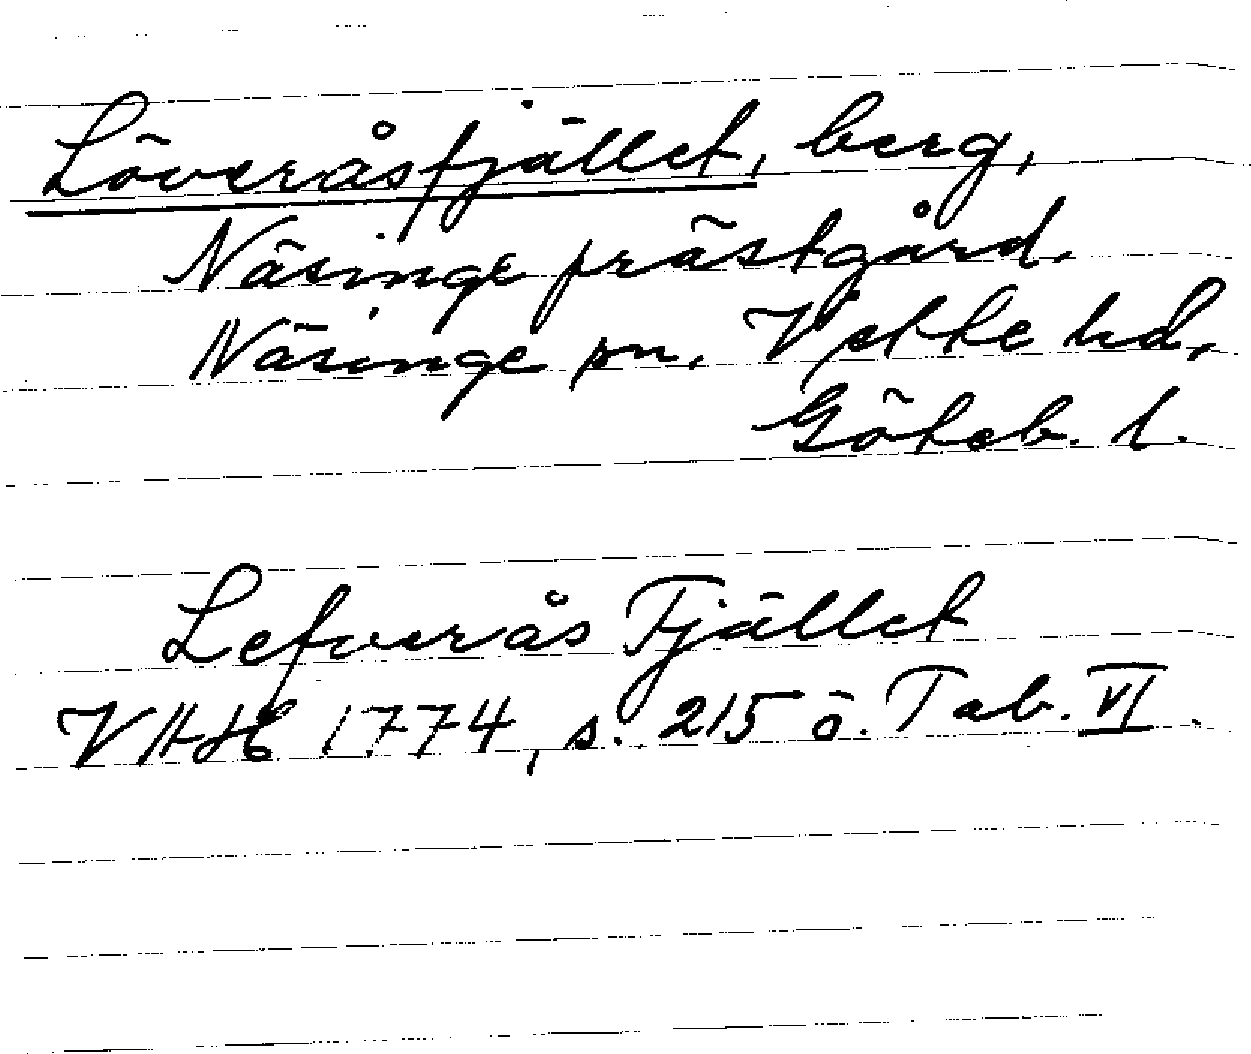 Löveråsfjället, berg,
Näsinge prästgård.
Näsinge sn. Vette hd,
Göteb. l.
Lefverås Fjället
VAH 1774, s. 215 o. Tab. VI.